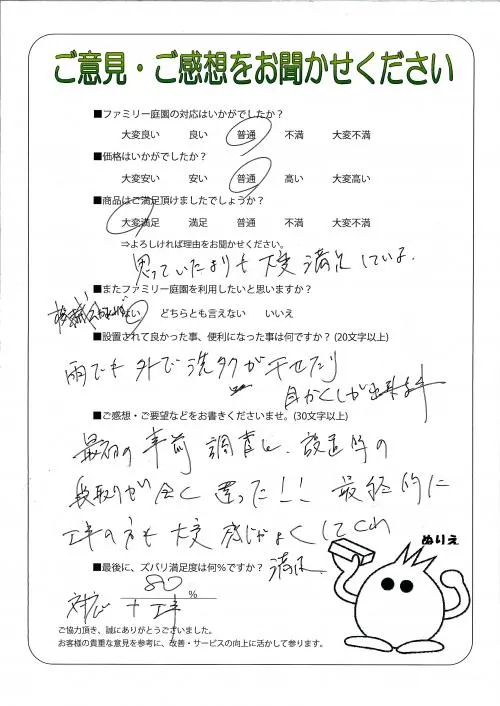 ご意見・ご感想をお聞かせください
■ファミリー庭園の対応はいかがでしたか？
大変良い 良い 普通 不満 大変不満
■価格はいかがでしたか？
大変安い 安い 普通 高い 大変高い
■商品はご満足頂けましたでしょうか？
大変満足 満足 普通 不満 大変不満
⇒よろしければ理由をお聞かせください。
思っていたよりも 大変 満足している。
■またファミリー庭園を利用したいと思いますか？
はい どちらとも言えない いいえ
■設置されて良かった事、便利になった事は何ですか？(20文字以上)
雨でも 外で 洗タクが 干せたり
目かくしが出来ます
■ご感想・ご要望などをお書きくださいませ。(30文字以上)
最初の 事前 調査と、設置時の
段取りが 全く 違った!! 最終的に
工事の方も 大変 感じがよくしてくれ
満足
ぬりえ
■最後に、ズバリ満足度は何％ですか？
80 %
対応 + 工事
ご協力頂き、誠にありがとうございました。
お客様の貴重な意見を参考に、改善・サービスの向上に活かして参ります。